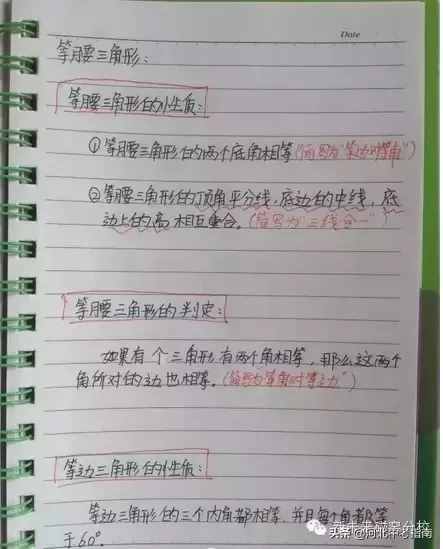 Date
等腰三角形:
等腰三角形的性质:
①等腰三角形的两个底角相等(简写为"等边对等角")
②等腰三角形的顶角平分线,底边的中线,底
边上的高相互重合。(简写为"三线合一")
等腰三角形的判定:
如果有个三角形有两个角相等,那么这两个
角所对的边也相等。(简写为"等角对等边")
等边三角形的性质:
等边三角形的三个内角都相等,并且每个角都等
于60°
头条@河北中考指南